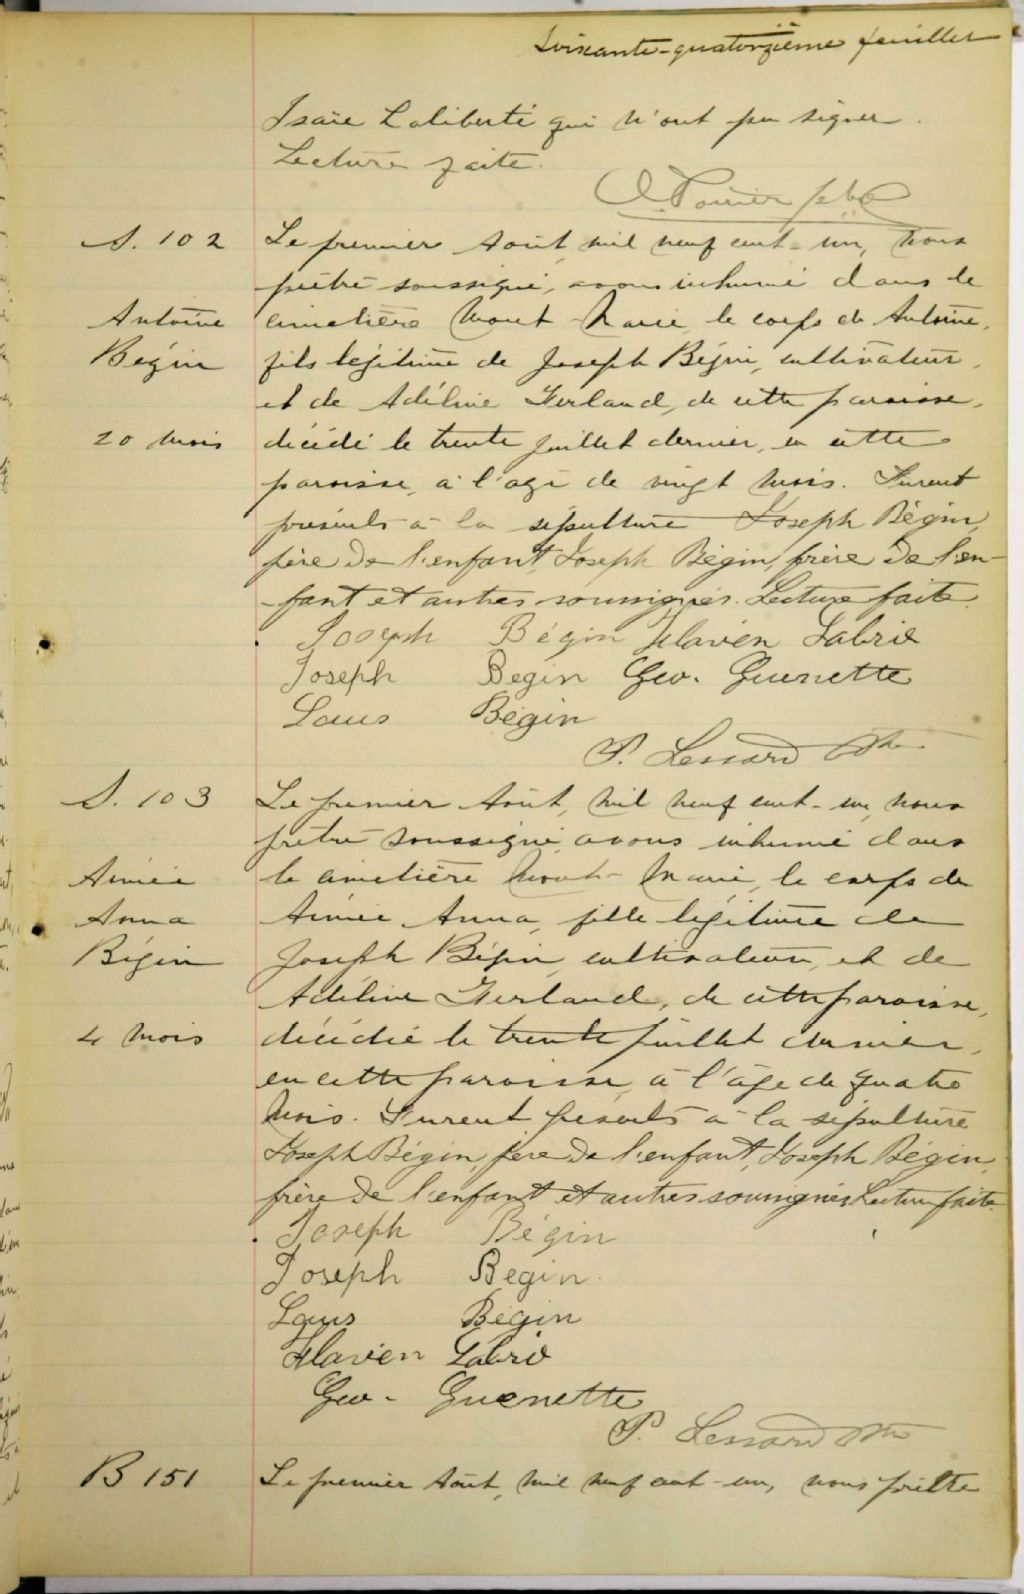 Soixante-quatorzième feuillet
Isaïe Laliberté qui n'ont pu signer.
Lecture faite.
O. Poirier ptre
S. 102
Le premier Août, mil neuf cent-un, nous
prêtre soussigné, avons inhumé dans le
Antoine
cimetière Mont-Marie le corps de Antoine,
Bégin
fils légitime de Joseph Bégin, cultivateur,
et de Adéline Gerland, de cette paroisse,
20 mois
décédé le trente juillet dernier, en cette
paroisse, à l'age de vingt mois. Furent
présents à la sépulture Joseph Bégin,
père de l'enfant, Joseph Bégin, frère de l'en-
fant et autres soussignés. Lecture faite.
Joseph Bégin Flavien Labrie
Joseph Begin Geo. Guenette
Louis Bégin
P. Lessard Ptre
S. 103
Le premier Août, mil neuf cent-un, nous
prêtre soussigné, avons inhumé dans
Aimée
le cimetière Mont-Marie, le corps de
Anna
Aimée Anna, fille légitime de
Bégin
Joseph Bégin, cultivateur, et de
Adéline Gerland, de cette paroisse,
4 mois
décédée le trente juillet dernier,
en cette paroisse, à l'âge de quatre
mois. Furent présents à la sépulture
Joseph Bégin, père de l'enfant, Joseph Bégin,
frère de l'enfant et autres soussignés. Lecture faite.
Joseph Bégin
Joseph Begin.
Louis Bégin
Flavien Labrie
Geo. Guenette
P. Lessard Ptre
B 151
Le premier Août, mil neuf cent-un, nous prêtre